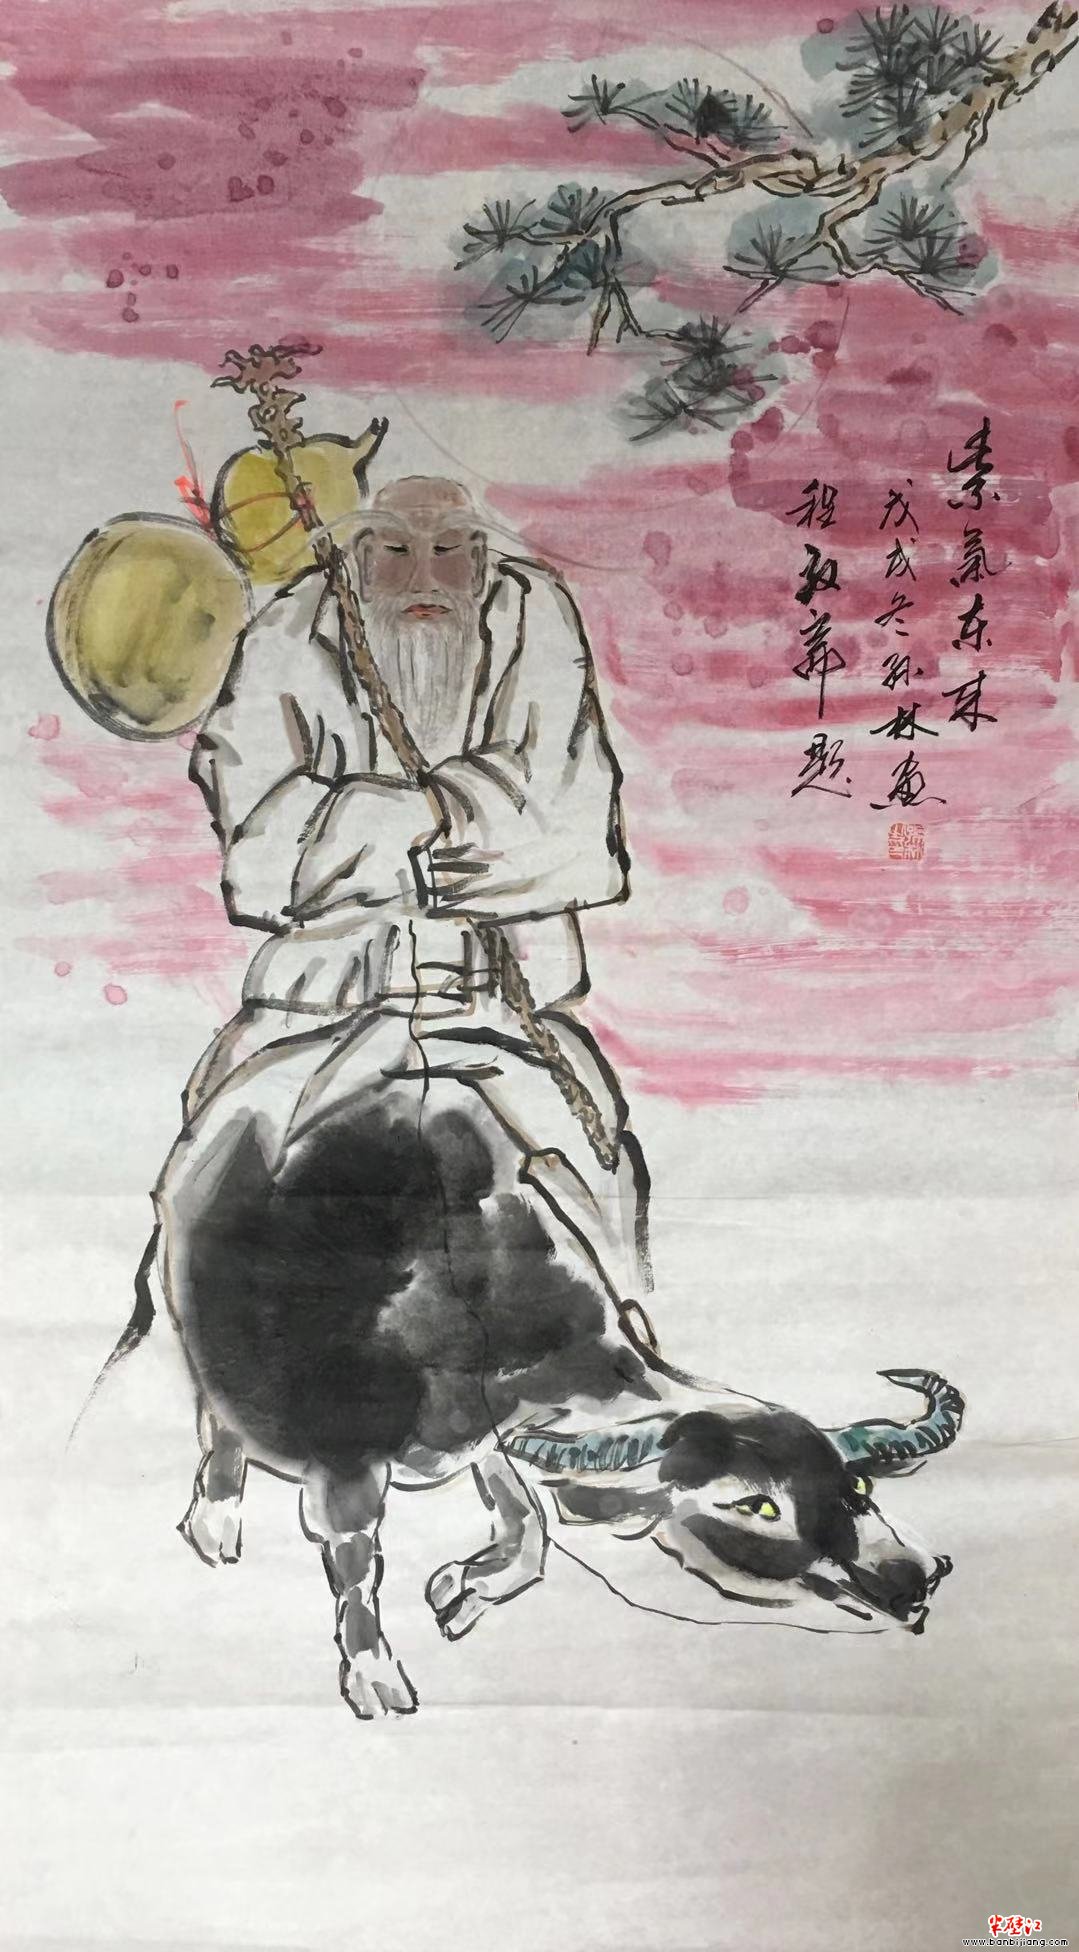 紫氣东来
戊戌冬孙林画
程
题
半壁江
www.banbijiang.com